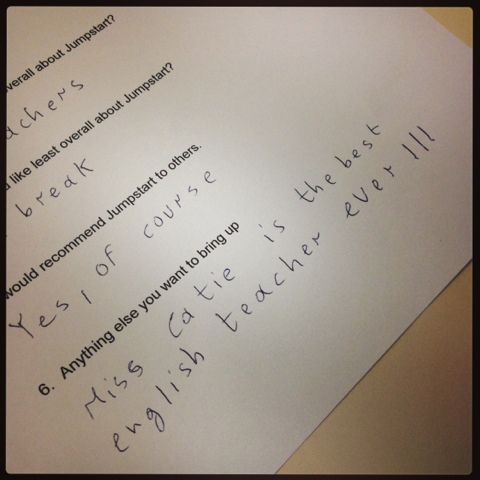 overall about Jumpstart?
achers
like least overall about Jumpstart?
break
would recommend Jumpstart to others.
Yes, of course
6. Anything else you want to bring up
Miss Catie is the best
english teacher ever !!!